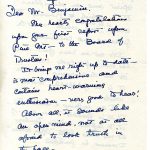 Dear Mr. Benjamin,
The hearty congratulations
upon your first report upon
Paid Art — to the Board of
Trustees!
It brings me right up to date —
is most comprehensive and
contains heart-warming
enthusiasm — very good to hear!
Above all, it sounds like
an open mind, not at all
afraid to look truth in
the face.